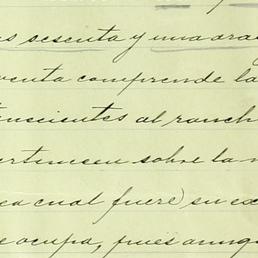 as sesenta y una ara
venta comprende la
tenecientes al ranch
ertenecen sobre la
ea cual fuere) su ex
e ocupa, pues aunq